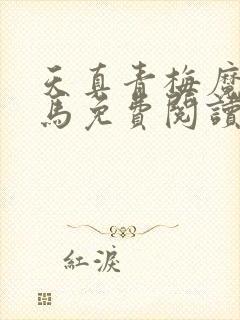 天真青梅魔
馬免費閱讀
紅淚